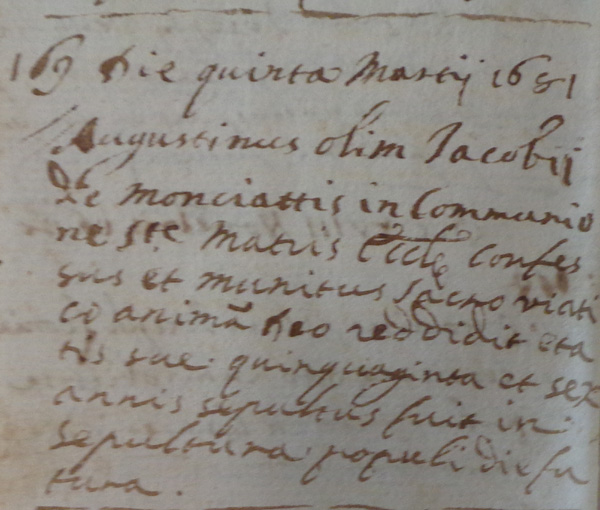 169 Die quinta Martij 1681
Augustinus olim Jacobij
De Monciattis in Communio
ne Ste Matris Eccle confes
sus et munitus sacro viati
co animã Deo reddidit eta
tis sue quinquaginta et sex
annis sepultus fuit in
sepultura populi die fu
tura.